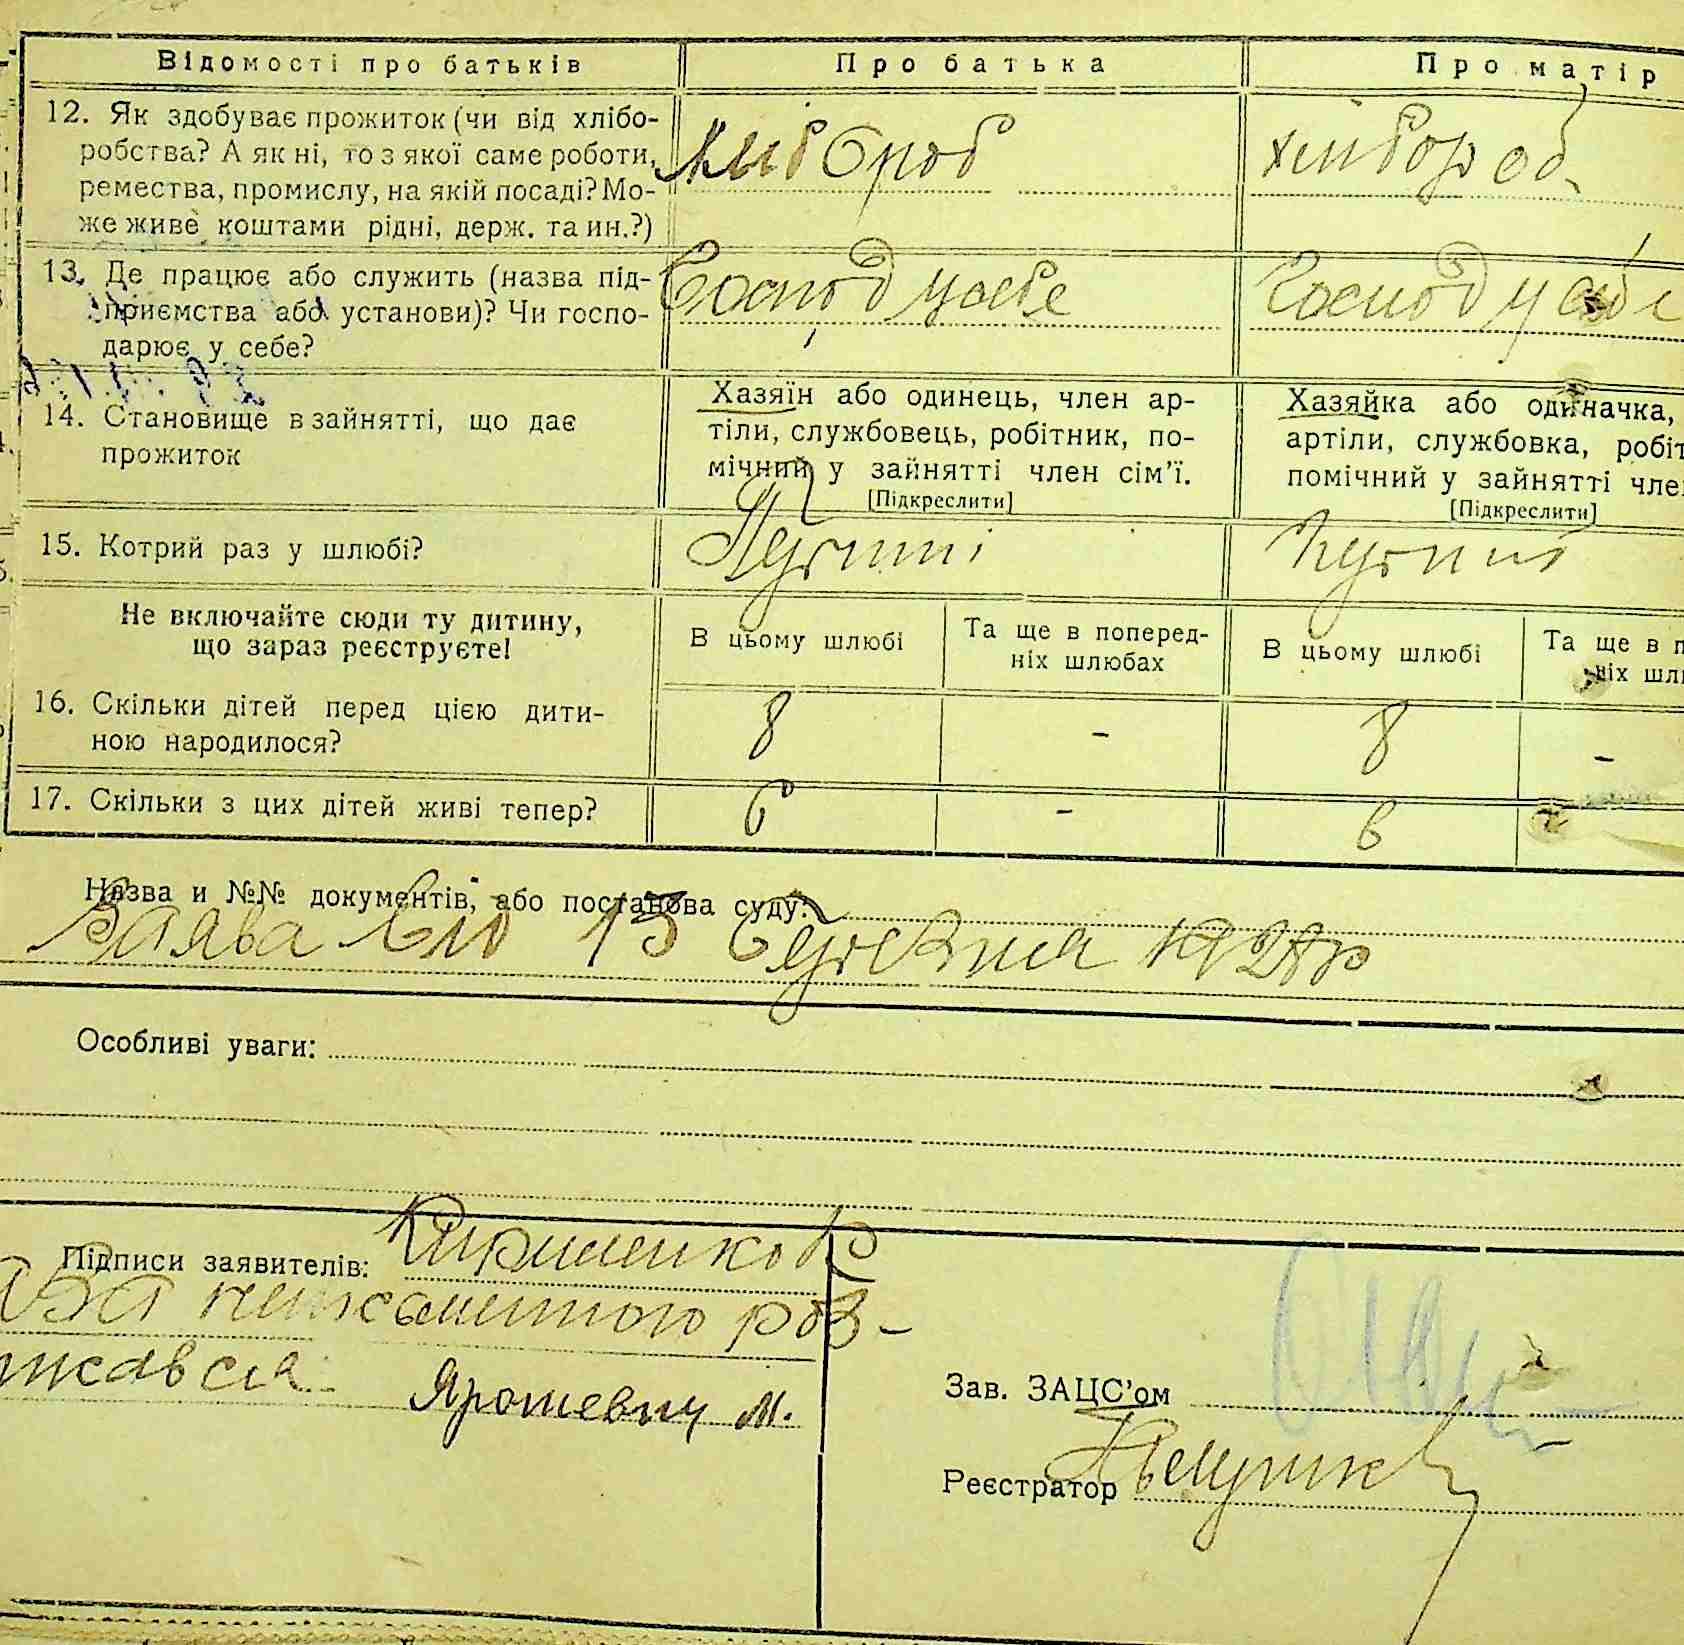 Відомості про батьків Про батька Про матір
12. Як здобуває прожиток (чи від хлібо-
робства? А як ні, то з якої саме роботи,
ремества, промислу, на якій посаді? Мо-
же живе коштами рідні, держ. та ин.?)
хлібороб хлібороб
13. Де працює або служить (назва під-
приємства або установи)? Чи госпо-
дарює у себе?
Господ у себе Господ у себе
14. Становище в зайнятті, що дає
прожиток
Хазяїн або одинець, член ар-
тіли, службовець, робітник, по-
мічний у зайнятті член сім'ї.
[Підкреслити]
Хазяйка або одиначка,
артіли, службовка, робіт
помічний у зайнятті чле
[Підкреслити]
15. Котрий раз у шлюбі?
Перший
Не включайте сюди ту дитину,
що зараз реєструєте!
В цьому шлюбі
Та ще в поперед-
ніх шлюбах
В цьому шлюбі
Та ще в п
ніх шлю
16. Скільки дітей перед цією дити-
ною народилося?
8 - 8 -
17. Скільки з цих дітей живі тепер?
6 - 6
Назва и №№ документів, або постанова суду:
Заява від 13 Серпня 192 р
Особливі уваги:
Підписи заявителів: Кириленко
за неписьменного роз-
Ярошевич М.
Зав. ЗАЦС'ом
Реєстратор